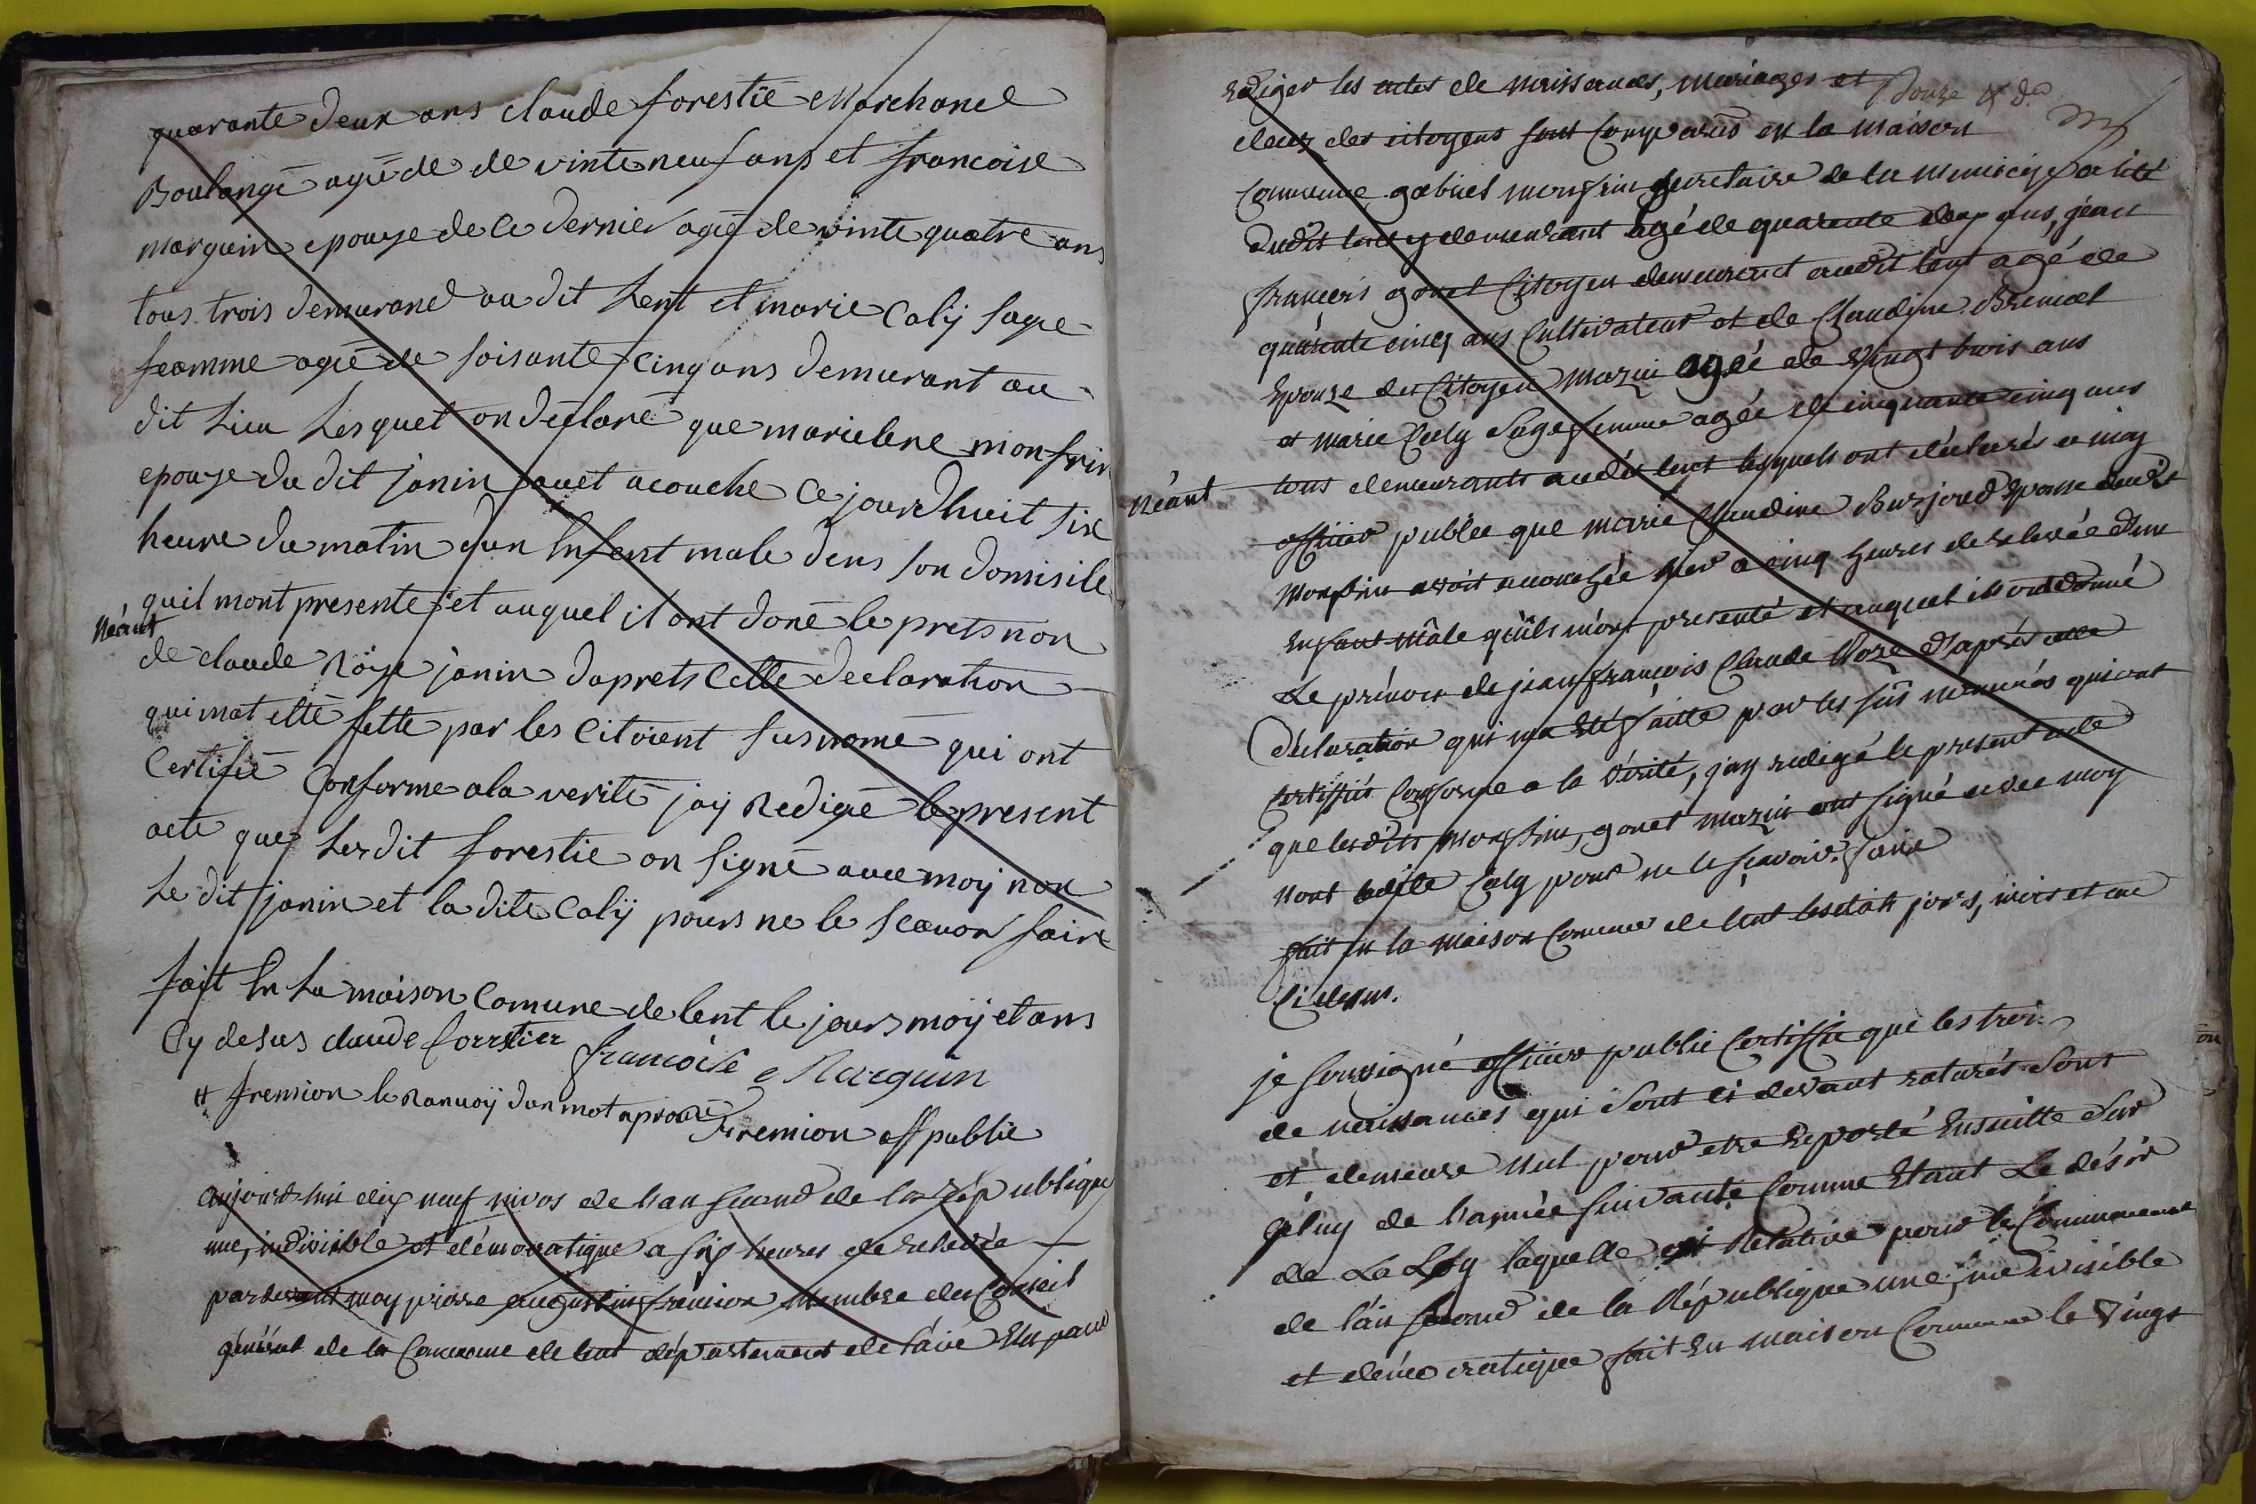 quarante deux ans claude forestie Marchand
Boulangé agié de de vinte neuf ans et francoise
marguin epouze de ce dernier agié de vinte quatre ans
tous trois demurand au dit Lent et marie Caly sage
feamme agié de soisante cinq ans demurant au
dit Lieu Lesquet on declaré que marie monfrin
epouze du dit janin auet acouché ce jourdhuit six
heure du matin dun Enfent male dens son domisile
quil mont presenté et auquel il ont doné le prets non
Néant
de claude janin daprets cette declaration
qui mat etté fette par les Citoient susnomé qui ont
Certifié Conforme a la verité jaij Redigié le present
acte que Lesdit forestie on signé avec moij non
Le dit janin et la dite Calij pours ne le sçavoir faire
fait En La maison Comune de lent le jours moij et ans
Cy desus claude forestier
francoise Marguin
# fremion le Ranvoij dun mot aprové
fremion off public
aujourdhui dix neuf nivos de l'an second de la république
une, indivisible et démocratique a six heures de relevée
par devant moy pierre augustin frémion Membre du Conseil
général de la Commune de lent département de l'ain Elu pour
Rediger les actes de naissances, mariages et
Douze
deces des citoyens sont Comparus en la maison
Commune gabriel monfrin secretaire de la municipalité
dudit lent y demeurant agé de quarente deux ans, jean
françois gonet Citoyen demeurant audit lent agé de
quarente cinq ans Cultivateur et de Claudine
Epouze du Citoyen Mazui agée de Vingt trois ans
et marie Caly Sage femme agée de cinquante cinq ans
Néant
tous demeurants audit lent lesquels ont déclarés a moy
officier public que marie Claudine Epouse dudit
Monfrin avoit accouchée hier a cinq heures de relevée d'un
Enfant Mâle qu'ils m'ont presenté et auquel ils ont donné
Le prénom de jean françois Claude d'après cette
Déclaration qui m'a Eté faitte par les sus nommés qui ont
Certiffiés Conforme a la Vérité, j'ay redigé le present acte
que lesdits Monfrin, gonet mazui ont signé avec moy
Nont ladite Caly pour ne le sçavoir faire
fait En la maison Commune de lent lesdits jours, mois et an
Ci dessus.
je soussigné officier public Certiffie que les trois
de naissances qui sont ci devant raturés sont
et demeure Nul pour etre reporté Ensuitte sur
Celuy de l'année suivante Comme Etant Le désir
de La Loy laquelle est Relative pour le Commencement
de l'an second de la République une, indivisible
et démocratique fait En maison Commune le Vingt